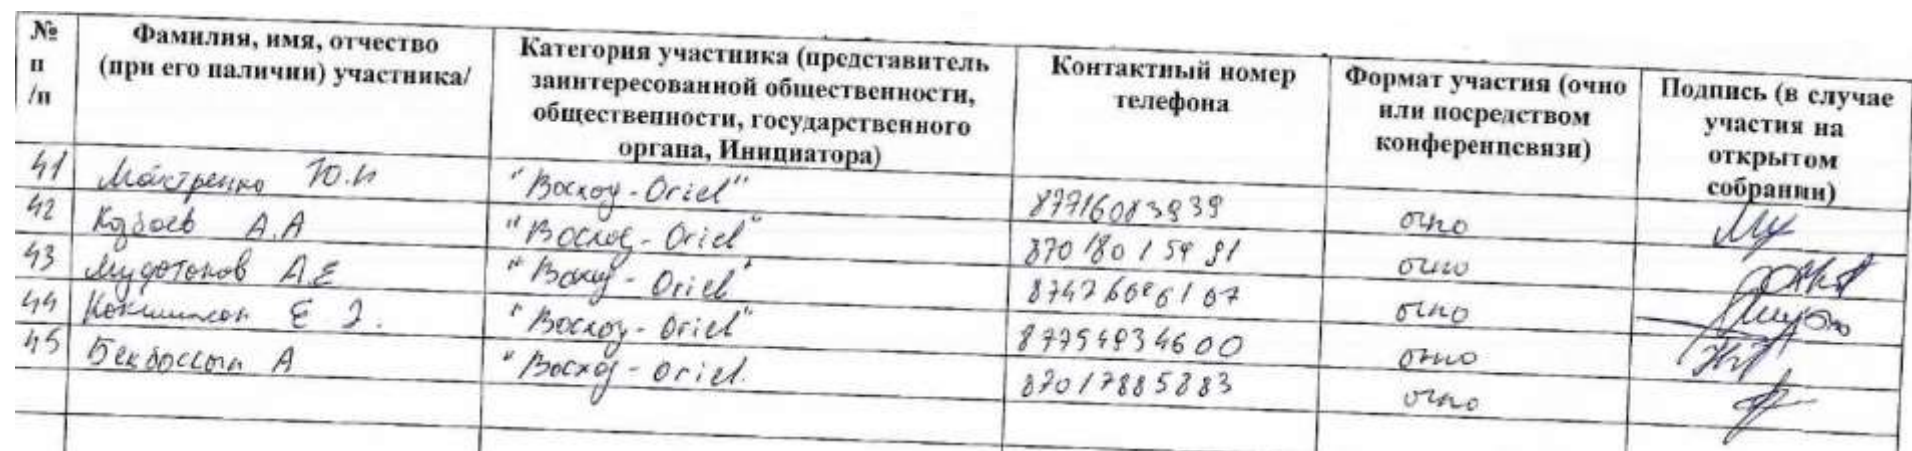 № п /п | Фамилия, имя, отчество (при его наличии) участника/ | Категория участника (представитель заинтересованной общественности, общественности, государственного органа, Инициатора) | Контактный номер телефона | Формат участия (очно или посредством конференцсвязи) | Подпись (в случае участия на открытом собрании)
41 | Майстренко Ю.Н | "Восход-Oriel" | 87716083939 | очно
42 | А.А | "Восход-Oriel" | очно
43 | А.Е | "Восход-Oriel" | очно
44 | Е | "Восход-Oriel" | 87754934600 | очно
45 | Бекбосын А | "Восход-oriel. | 87017885883 | очно